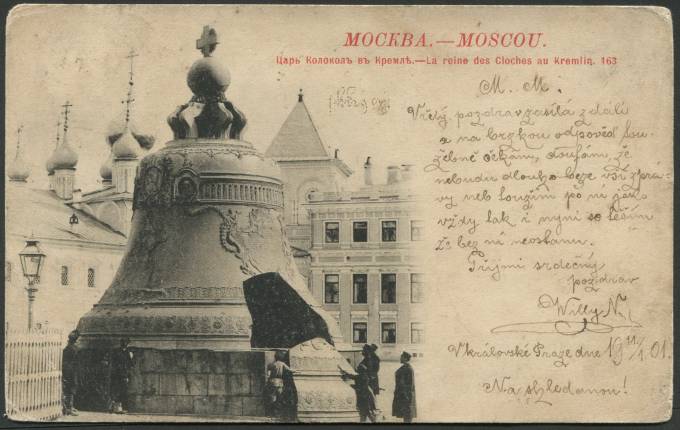 МОСКВА.—MOSCOU.
Царь Колоколъ въ Кремлѣ.—La reine des Cloches au Kremlin. 163
M. M.
Vřelý pozdrav zasílá z dáli
a na brzkou odpověď tou-
žebně čekám, doufám, že
nebudu dlouho beze vší zprá-
vy neb toužím po ní jako
vždy tak i nyní se těším
že bez ní neostanu.
Přijmi srdečný
pozdrav
Willy N.
V královské Praze dne 19 11/1. 01.
Na shledanou!